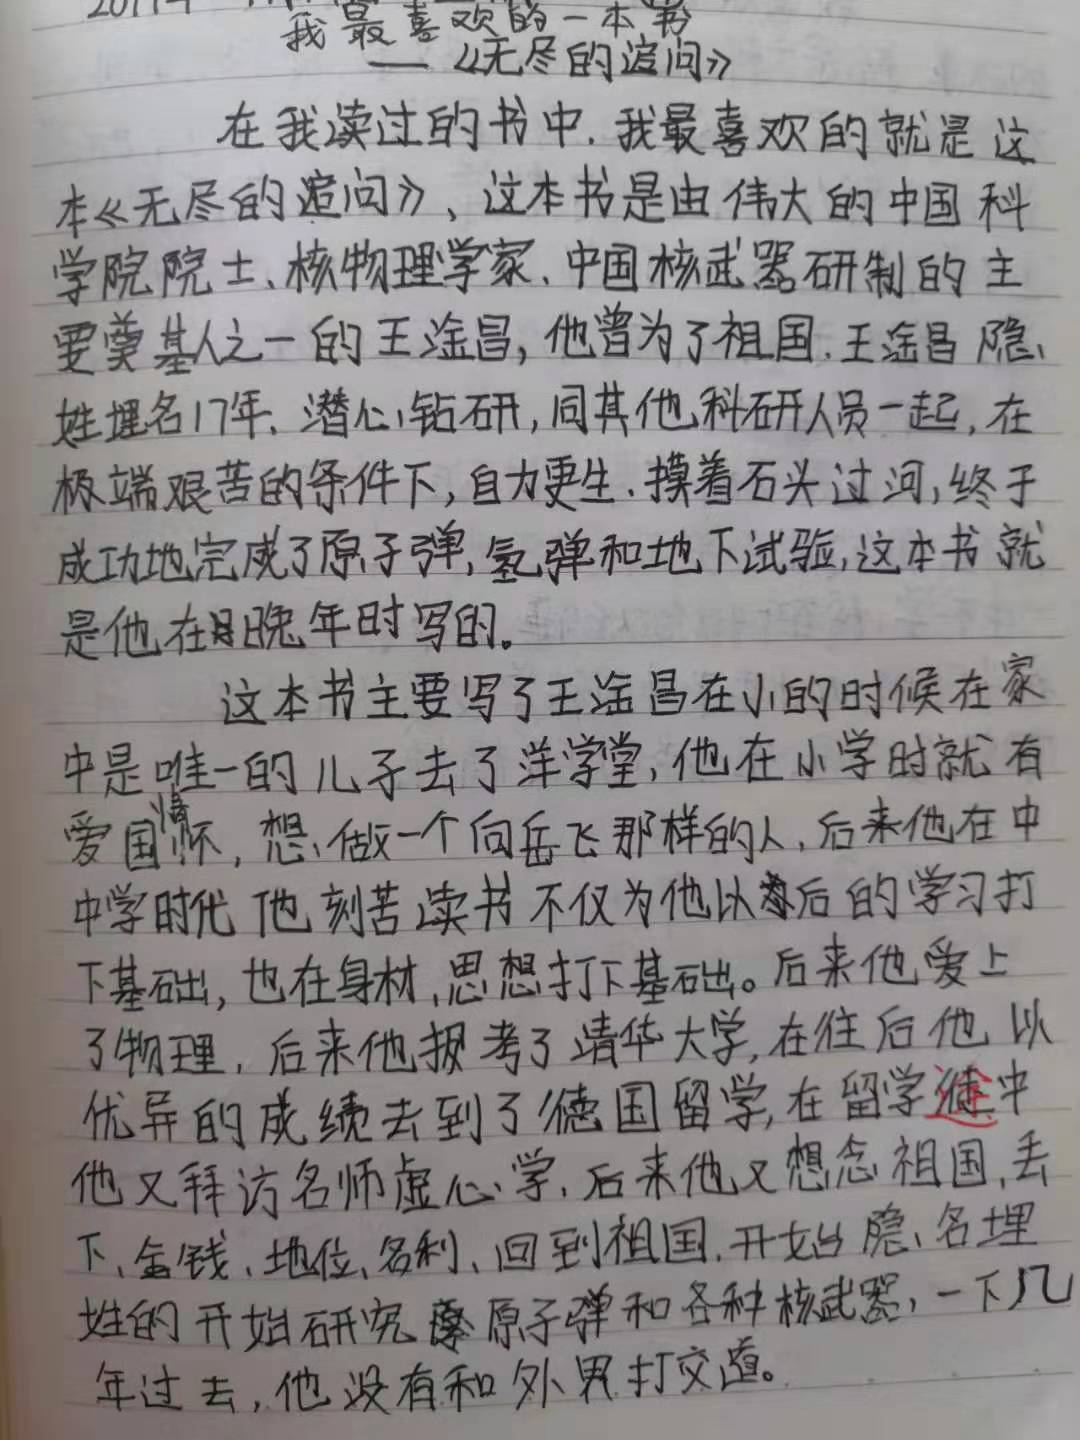 2019年
我最喜欢的一本书
——《无尽的追问》
在我读过的书中.我最喜欢的就是这
本《无尽的追问》、这本书是由伟大的中国科
学院院士、核物理学家、中国核武器研制的主
要奠基人之一的王淦昌,他曾为了祖国.王淦昌隐
姓埋名17年、潜心钻研,同其他科研人员一起,在
极端艰苦的条件下,自力更生.摸着石头过河,终于
成功地完成了原子弹,氢弹和地下试验,这本书就
是他在晚年时写的。
这本书主要写了王淦昌在小的时候在家
中是唯一的儿子去了洋学堂,他在小学时就有
爱国情怀,想做一个向岳飞那样的人,后来他在中
中学时代他刻苦读书不仅为他以后的学习打
下基础,也在身材,思想打下基础。后来他爱上
了物理,后来他报考了清华大学,在往后他以
优异的成绩去到了德国留学,在留学途中
他又拜访名师虚心学,后来他又想念祖国,丢
下、金钱、地位、名利、回到祖国.开始隐名埋
姓的开始研究原子弹和各种核武器,一下几
年过去,他没有和外界打交道。